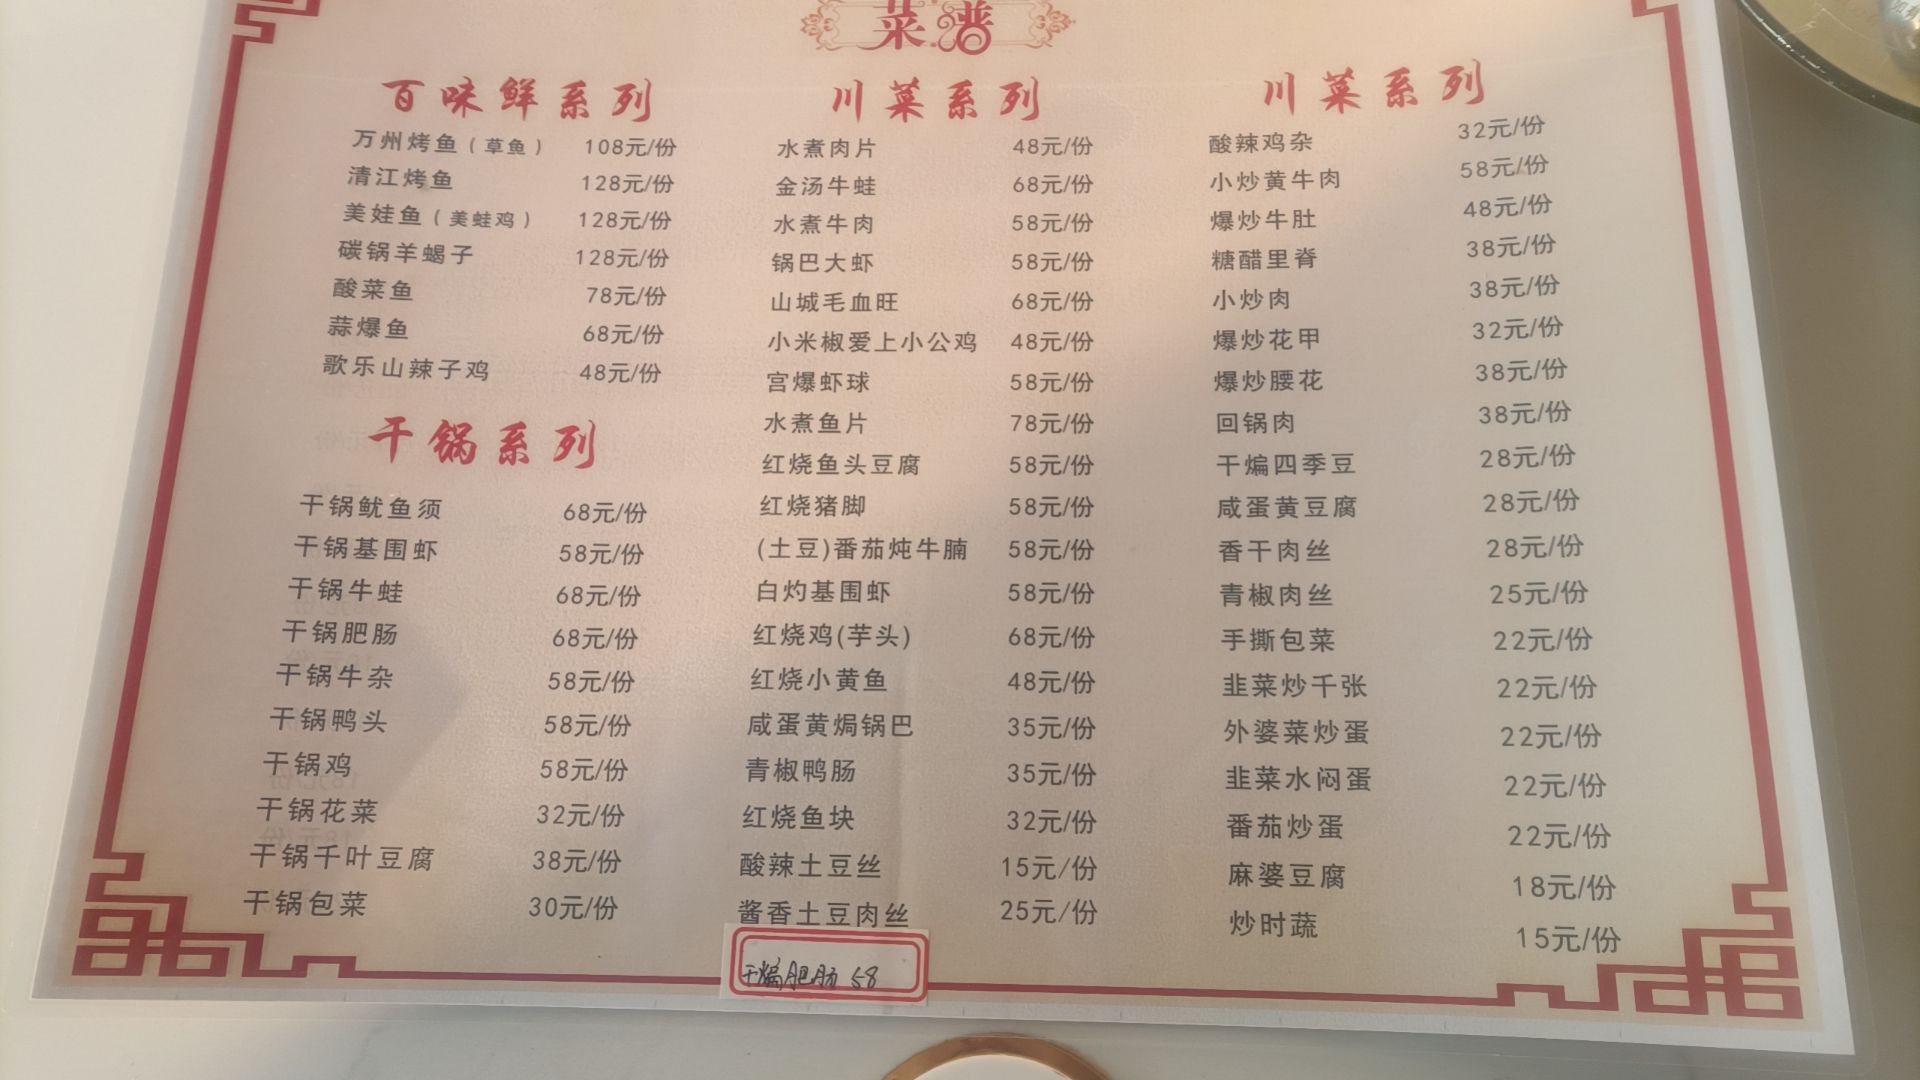 菜谱
百味鲜系列
万州烤鱼（草鱼） 108元/份
清江烤鱼 128元/份
美娃鱼（美蛙鸡） 128元/份
碳锅羊蝎子 128元/份
酸菜鱼 78元/份
蒜爆鱼 68元/份
歌乐山辣子鸡 48元/份
干锅系列
干锅鱿鱼须 68元/份
干锅基围虾 58元/份
干锅牛蛙 68元/份
干锅肥肠 68元/份
干锅牛杂 58元/份
干锅鸭头 58元/份
干锅鸡 58元/份
干锅花菜 32元/份
干锅千叶豆腐 38元/份
干锅包菜 30元/份
川菜系列
水煮肉片 48元/份
金汤牛蛙 68元/份
水煮牛肉 58元/份
锅巴大虾 58元/份
山城毛血旺 68元/份
小米椒爱上小公鸡 48元/份
宫爆虾球 58元/份
水煮鱼片 78元/份
红烧鱼头豆腐 58元/份
红烧猪脚 58元/份
(土豆)番茄炖牛腩 58元/份
白灼基围虾 58元/份
红烧鸡(芋头) 68元/份
红烧小黄鱼 48元/份
咸蛋黄焗锅巴 35元/份
青椒鸭肠 35元/份
红烧鱼块 32元/份
酸辣土豆丝 15元/份
酱香土豆肉丝 25元/份
干煸肥肠 58
川菜系列
酸辣鸡杂 32元/份
小炒黄牛肉 58元/份
爆炒牛肚 48元/份
糖醋里脊 38元/份
小炒肉 38元/份
爆炒花甲 32元/份
爆炒腰花 38元/份
回锅肉 38元/份
干煸四季豆 28元/份
咸蛋黄豆腐 28元/份
香干肉丝 28元/份
青椒肉丝 25元/份
手撕包菜 22元/份
韭菜炒千张 22元/份
外婆菜炒蛋 22元/份
韭菜水闷蛋 22元/份
番茄炒蛋 22元/份
麻婆豆腐 18元/份
炒时蔬 15元/份